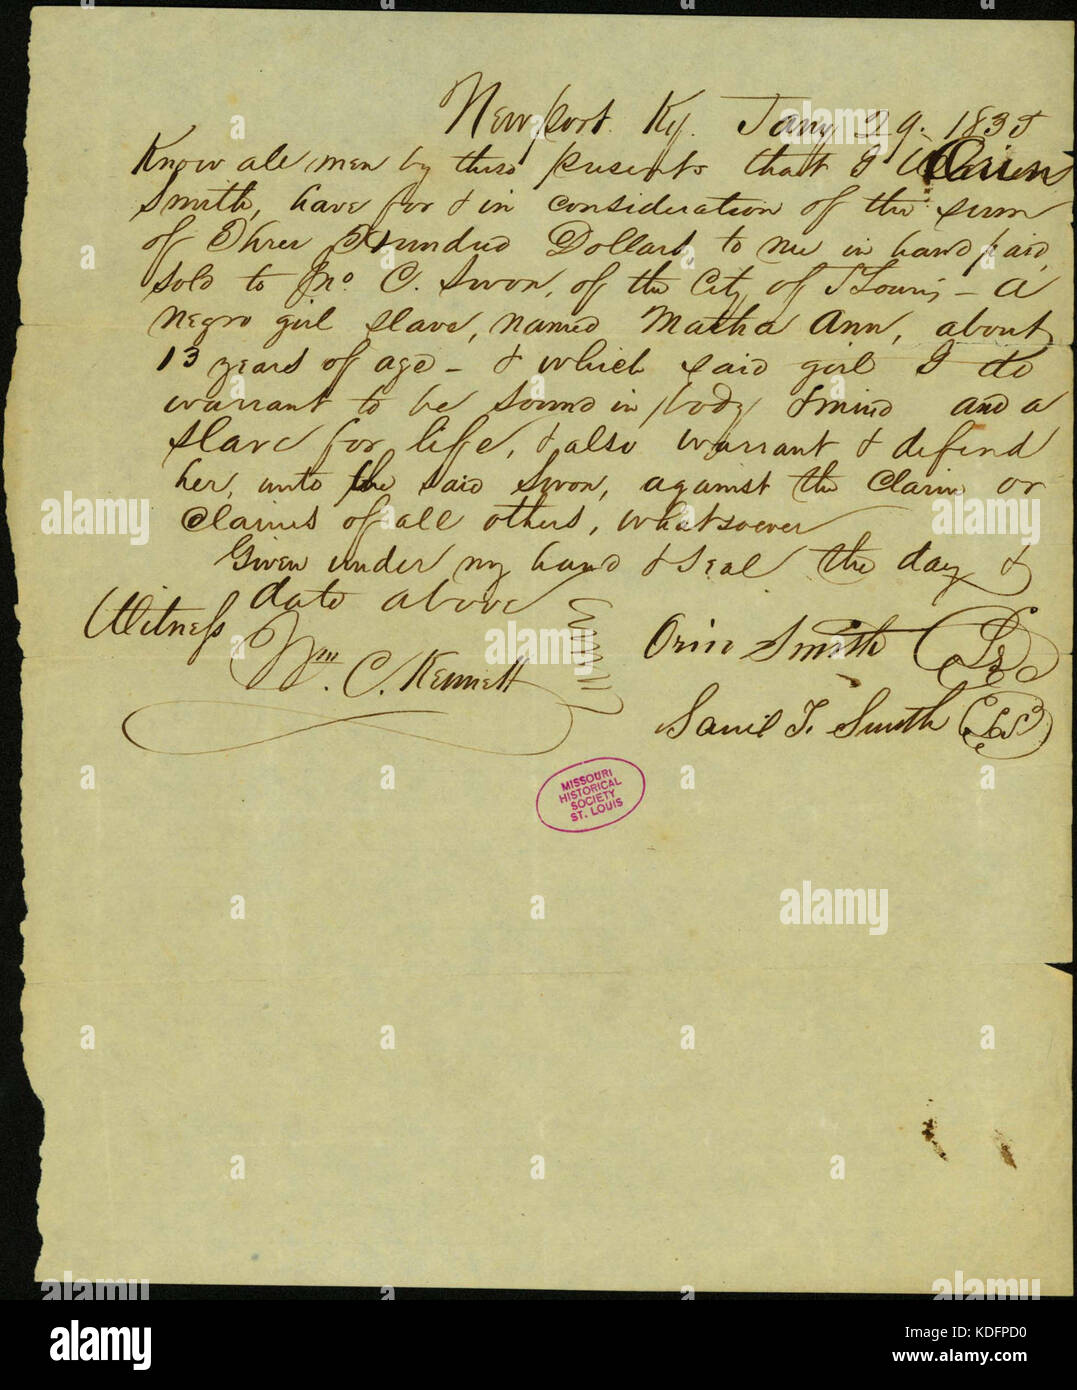 Newport Ky. Jany 29. 1835
Know all men by these presents that I Orrin
Smith, have for & in consideration of the sum
of Three Hundred Dollars, to me in hand paid,
sold to Jno. C. Swon, of the City of St Louis – a
negro girl slave, named Martha Ann, about
13 years of age – & which said girl I do
warrant to be sound in body & mind and a
slave for life, & also warrant & defend
her, unto the said Swon, against the claim or
claims of all others, whatsoever
Given under my hand & seal the day &
date above
Witness
Wm. C. Kennett
Orin Smith
Saml T. Smith
MISSOURI
HISTORICAL
SOCIETY
ST. LOUIS
alamy
Image ID: KDFPD0
www.alamy.com